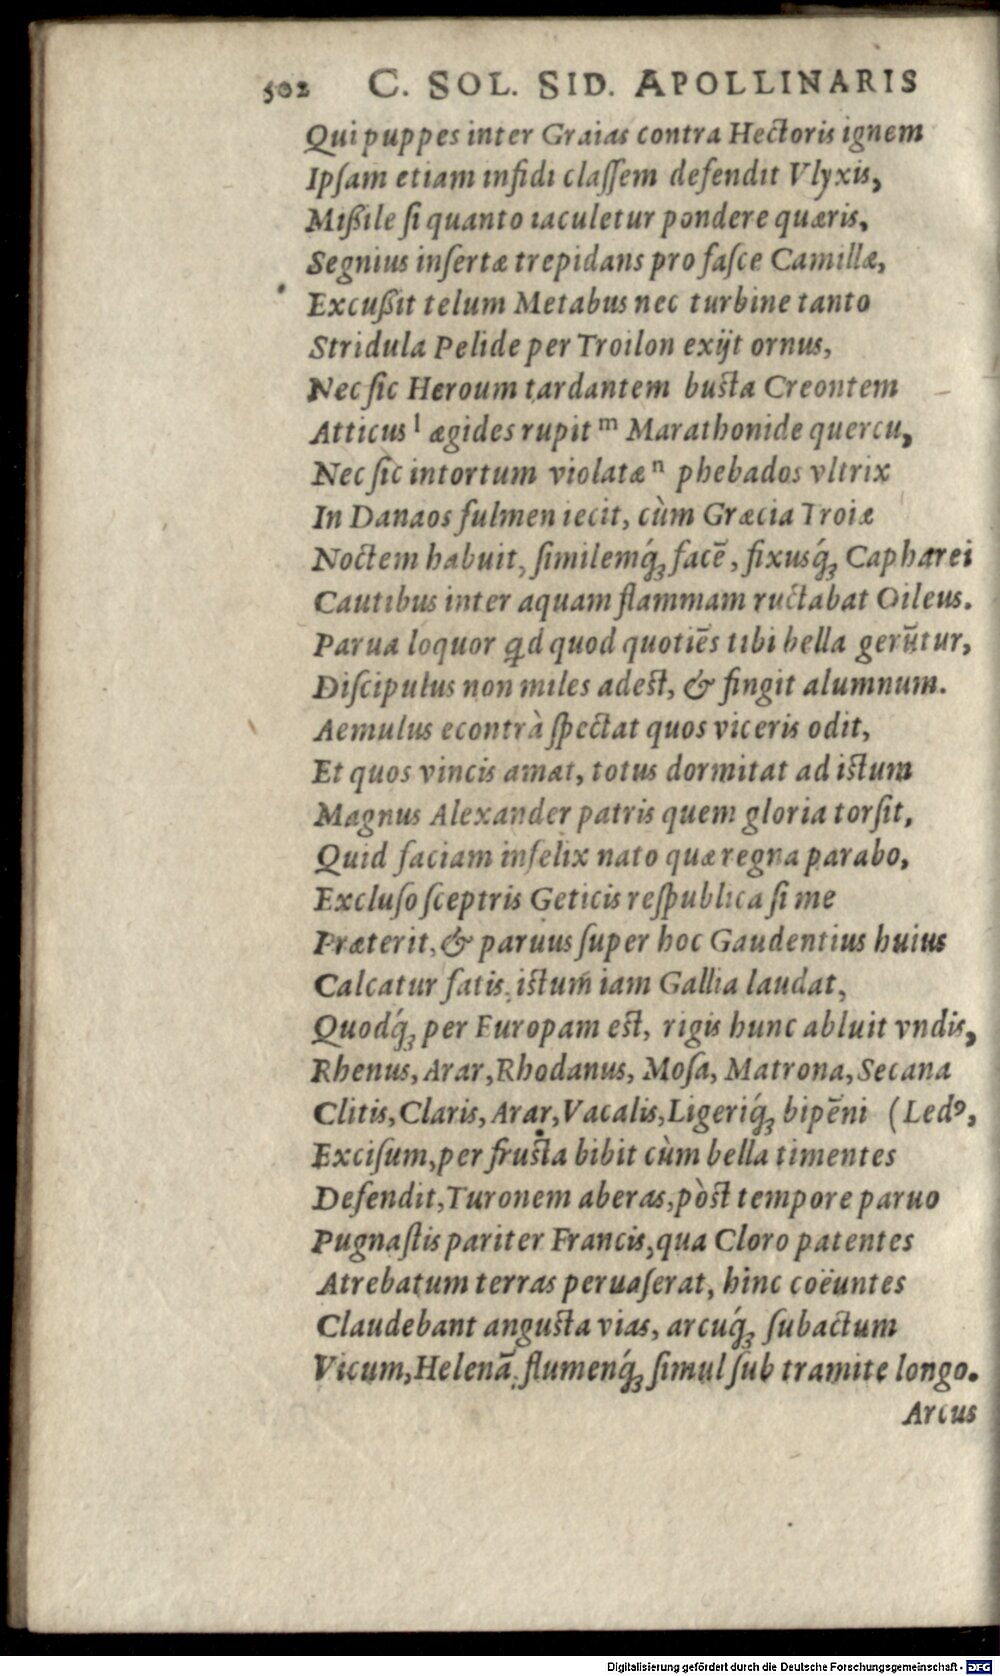 502 C. SOL. SID. APOLLINARIS
Qui puppes inter Graias contra Hectoris ignem
Ipſam etiam infidi claſſem defendit Vlyxis,
Mißile ſi quanto iaculetur pondere quæris,
Segnius inſertæ trepidans pro faſce Camillæ,
Excußit telum Metabus nec turbine tanto
Stridula Pelide per Troilon exijt ornus,
Nec ſic Heroum tardantem busta Creontem
Atticus l ægides rupit m Marathonide quercu,
Nec ſic intortum violatæ n phebados vltrix
In Danaos fulmen iecit, cùm Græcia Troiæ
Noctem habuit, ſimilemq́; facē, fixusq́; Capharei
Cautibus inter aquam flammam ructabat Oileus.
Parua loquor qd quod quotiēs tibi bella gerūtur,
Diſcipulus non miles adest, & fingit alumnum.
Aemulus econtrà ſpectat quos viceris odit,
Et quos vincis amat, totus dormitat ad istum
Magnus Alexander patris quem gloria torſit,
Quid faciam infelix nato quæ regna parabo,
Excluſo ſceptris Geticis reſpublica ſi me
Præterit, & paruus ſuper hoc Gaudentius huius
Calcatur fatis, istum iam Gallia laudat,
Quodq́; per Europam est, rigis hunc abluit vndis,
Rhenus, Arar, Rhodanus, Moſa, Matrona, Secana
Clitis, Claris, Arar, Vacalis, Ligeriq́; bipēni (Ledꝰ,
Exciſum, per frusta bibit cùm bella timentes
Defendit, Turonem aberas, pòst tempore paruo
Pugnaſtis pariter Francis, qua Cloro patentes
Atrebatum terras peruaſerat, hinc coëuntes
Claudebant angusta vias, arcuq́; ſubactum
Vicum, Helenā, flumenq́; ſimul ſub tramite longo.
Arcus
Digitalisierung gefördert durch die Deutsche Forschungsgemeinschaft - DFG